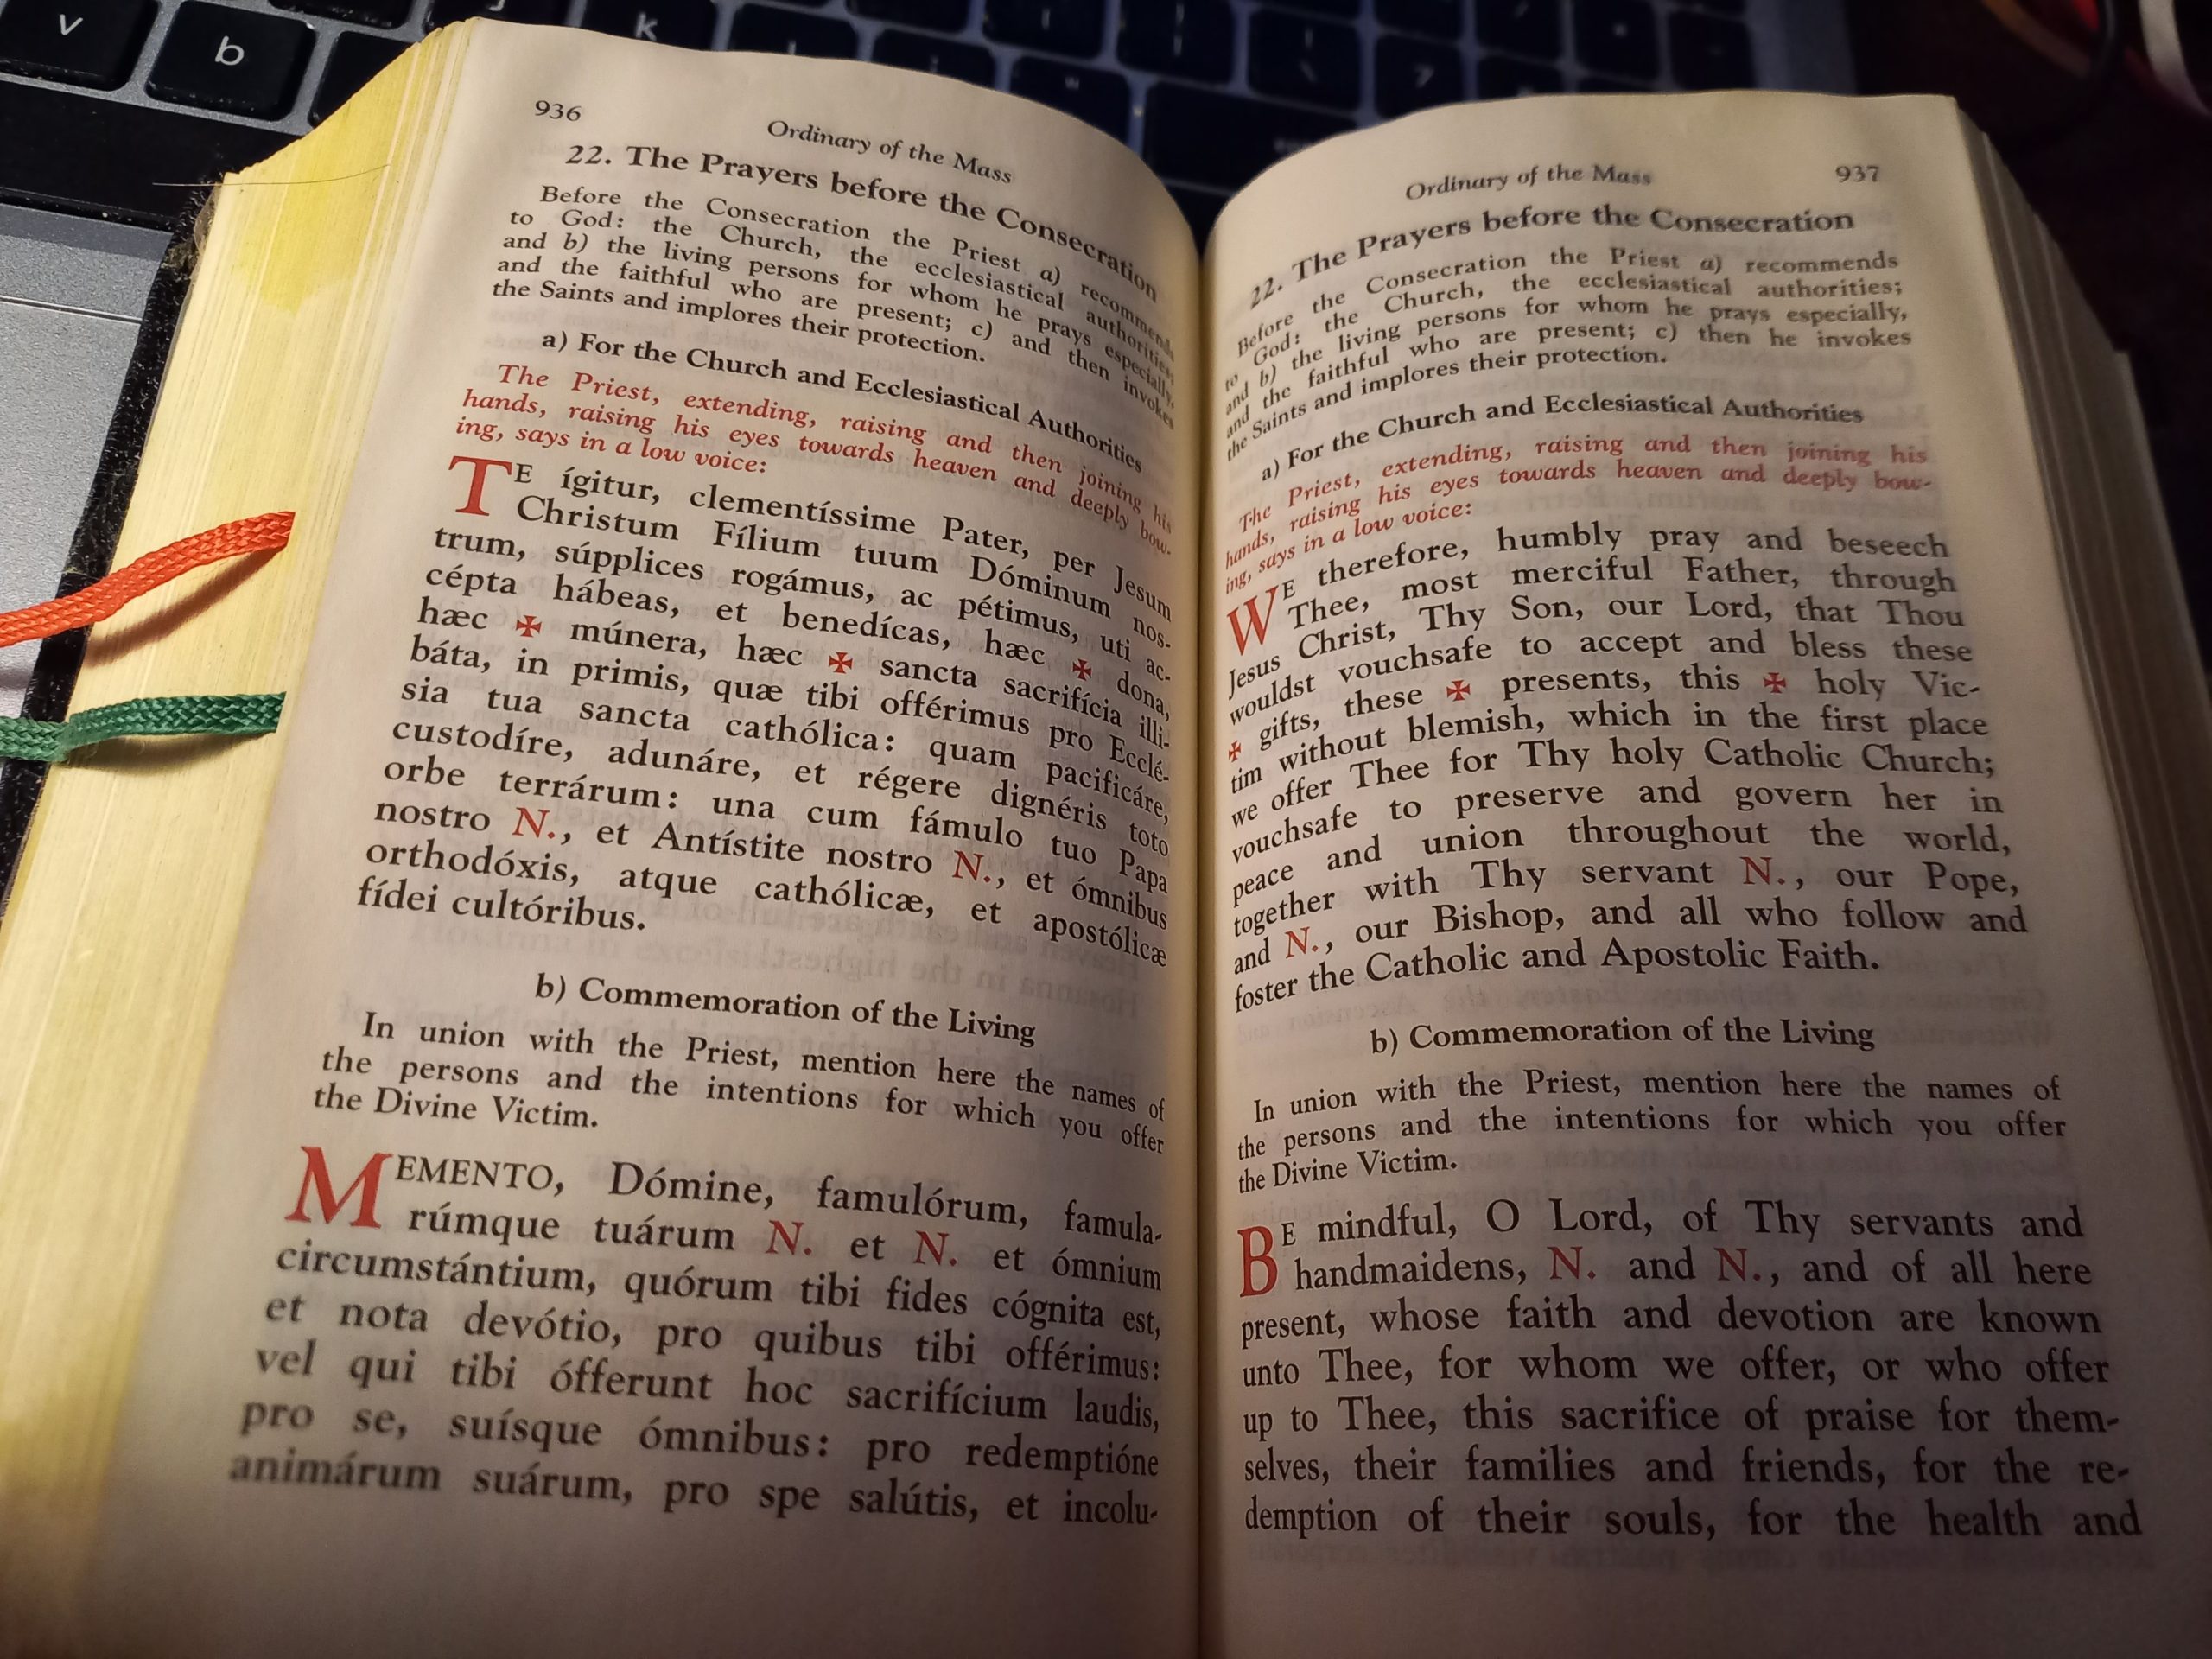 v
b
k
936
Ordinary of the Mass
22. The Prayers before the Consecration
Before the Consecration the Priest a) recommends
to God: the Church, the ecclesiastical authorities;
and b) the living persons for whom he prays especially,
and the faithful who are present; c) and then invokes
the Saints and implores their protection.
a) For the Church and Ecclesiastical Authorities
The Priest, extending, raising and then joining his
hands, raising his eyes towards heaven and deeply bow-
ing, says in a low voice:
TE ígitur, clementíssime Pater, per Jesum
Christum Fílium tuum Dóminum nos-
trum, súpplices rogámus, ac pétimus, uti ac-
cépta hábeas, et benedícas, hæc ✠ dona,
hæc ✠ múnera, hæc ✠ sancta sacrifícia illi-
báta, in primis, quæ tibi offérimus pro Ecclé-
sia tua sancta cathólica: quam pacificáre,
custodíre, adunáre, et régere dignéris toto
orbe terrárum: una cum fámulo tuo Papa
nostro N., et Antístite nostro N., et ómnibus
orthodóxis, atque cathólicæ, et apostólicæ
fídei cultóribus.
b) Commemoration of the Living
In union with the Priest, mention here the names of
the persons and the intentions for which you offer
the Divine Victim.
MEMENTO, Dómine, famulórum, famula-
rúmque tuárum N. et N. et ómnium
circumstántium, quórum tibi fides cógnita est,
et nota devótio, pro quibus tibi offérimus:
vel qui tibi ófferunt hoc sacrifícium laudis,
pro se, suísque ómnibus: pro redemptióne
animárum suárum, pro spe salútis, et incolu-
Ordinary of the Mass
937
22. The Prayers before the Consecration
Before the Consecration the Priest a) recommends
to God: the Church, the ecclesiastical authorities;
and b) the living persons for whom he prays especially,
and the faithful who are present; c) then he invokes
the Saints and implores their protection.
a) For the Church and Ecclesiastical Authorities
The Priest, extending, raising and then joining his
hands, raising his eyes towards heaven and deeply bow-
ing, says in a low voice:
WE therefore, humbly pray and beseech
Thee, most merciful Father, through
Jesus Christ, Thy Son, our Lord, that Thou
wouldst vouchsafe to accept and bless these
✠ gifts, these ✠ presents, this ✠ holy Vic-
tim without blemish, which in the first place
we offer Thee for Thy holy Catholic Church;
vouchsafe to preserve and govern her in
peace and union throughout the world,
together with Thy servant N., our Pope,
and N., our Bishop, and all who follow and
foster the Catholic and Apostolic Faith.
b) Commemoration of the Living
In union with the Priest, mention here the names of
the persons and the intentions for which you offer
the Divine Victim.
BE mindful, O Lord, of Thy servants and
handmaidens, N. and N., and of all here
present, whose faith and devotion are known
unto Thee, for whom we offer, or who offer
up to Thee, this sacrifice of praise for them-
selves, their families and friends, for the re-
demption of their souls, for the health and